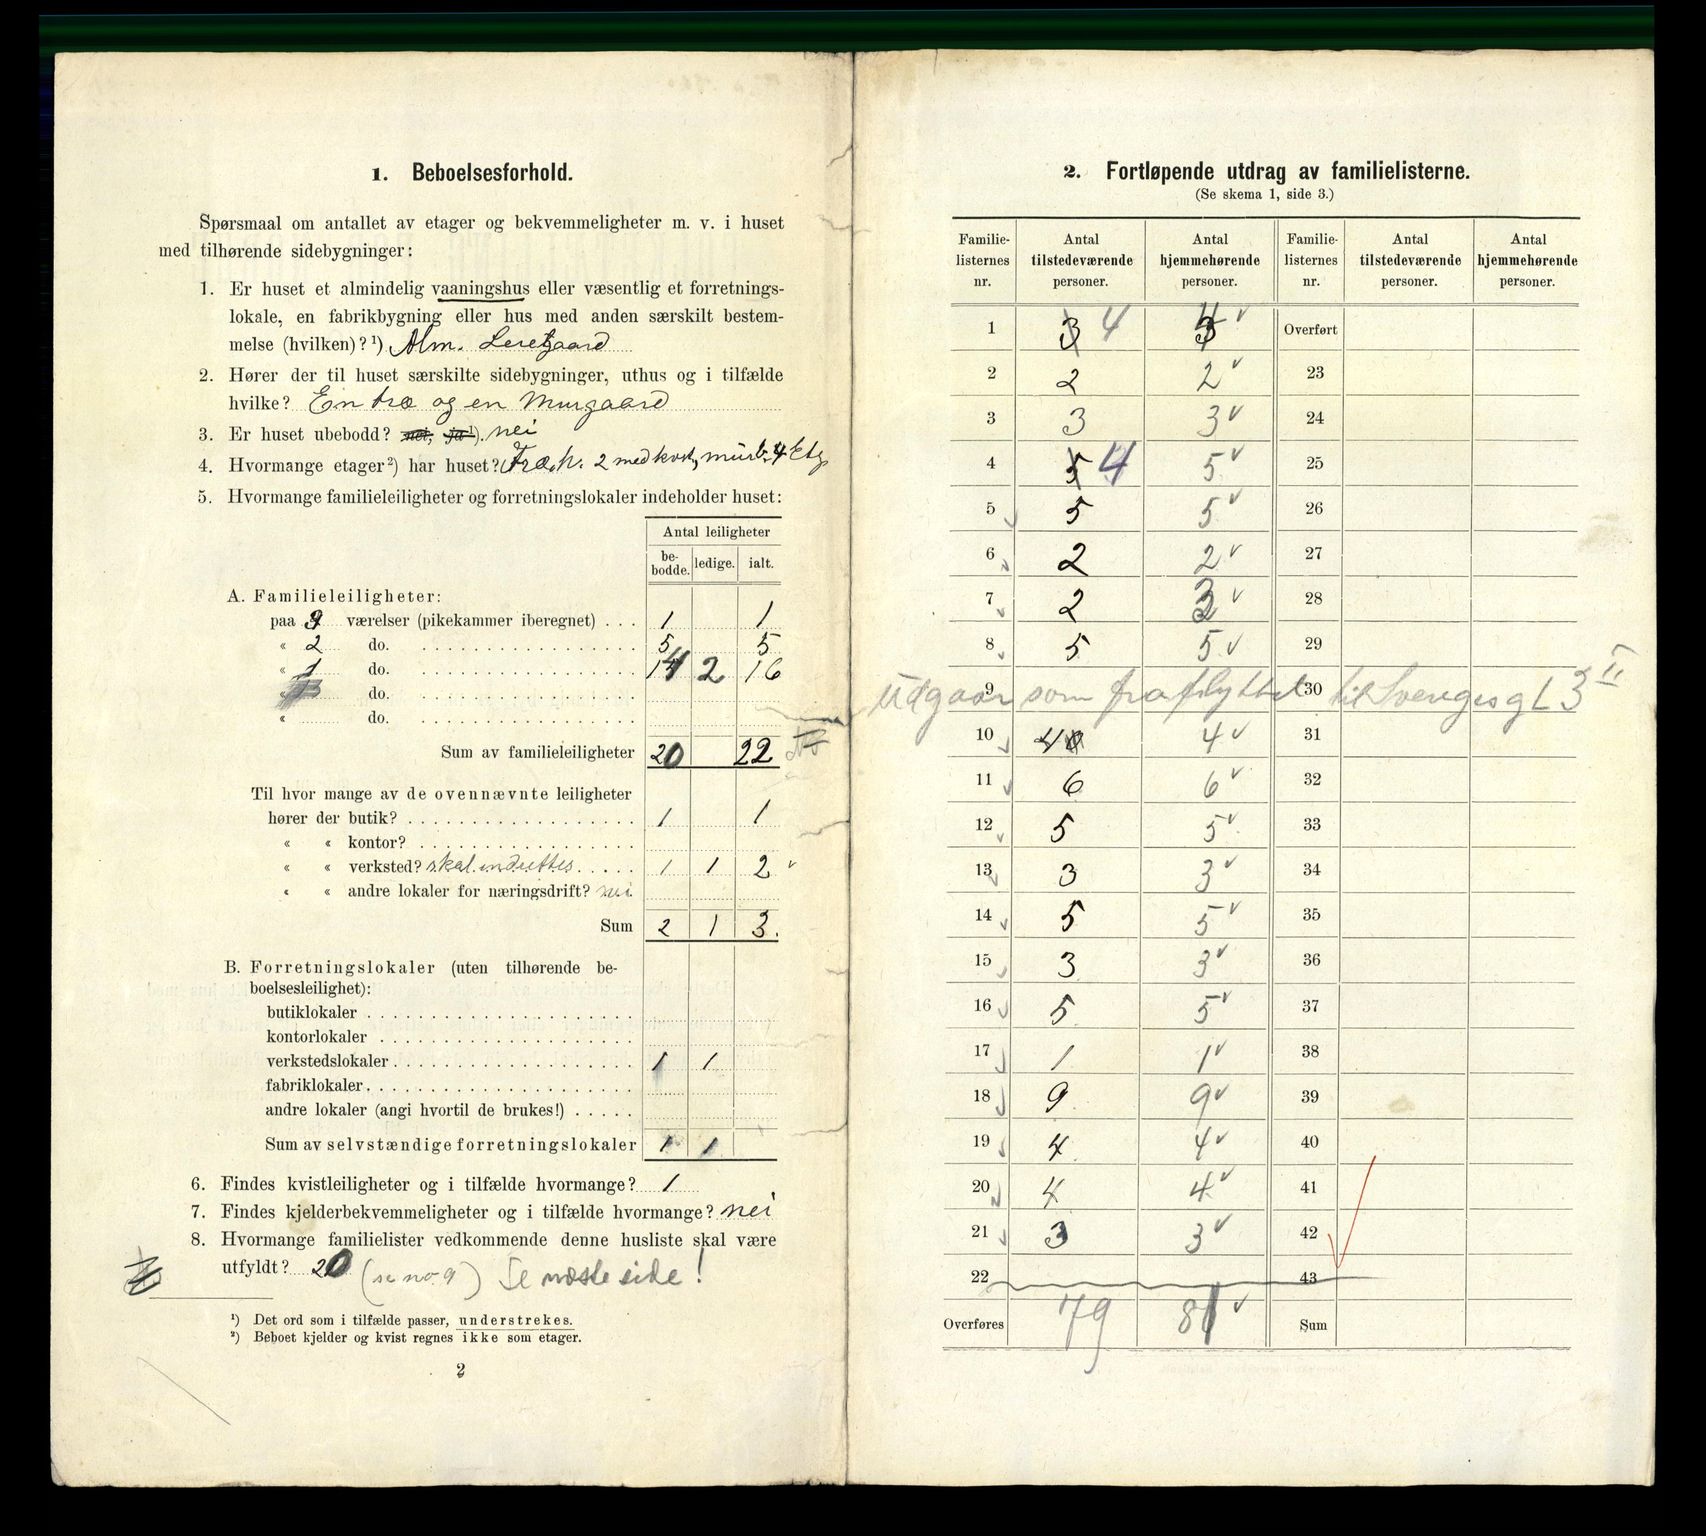 1. Beboelsesforhold.
Spørsmaal om antallet av etager og bekvemmeligheter m. v. i huset
med tilhørende sidebygninger:
1. Er huset et almindelig vaaningshus eller væsentlig et forretnings-
lokale, en fabrikbygning eller hus med anden særskilt bestem-
melse (hvilken)?¹) Alm. Leiegaard
2. Hører der til huset særskilte sidebygninger, uthus og i tilfælde
hvilke? En træ og en Murgaard
3. Er huset ubebodd? nei, ja¹). nei
4. Hvormange etager²) har huset? Træh. 2 med kvist, murb. 4 Etg
5. Hvormange familieleiligheter og forretningslokaler indeholder huset:
Antal leiligheter
be-bodde. ledige. ialt.
A. Familieleiligheter:
paa værelser (pikekammer iberegnet) . . . 1 1
« 2 do. 5 5
« 1 do. 14 2 16
« do.
« do.
Sum av familieleiligheter 20 22
Til hvor mange av de ovennævnte leiligheter
hører der butik? 1 1
« « kontor?
« « verksted? skal indrettes 1 1 2
« « andre lokaler for næringsdrift? nei
Sum 2 1 3.
B. Forretningslokaler (uten tilhørende be-
boelsesleilighet):
butiklokaler
kontorlokaler
verkstedslokaler 1 1
fabriklokaler
andre lokaler (angi hvortil de brukes!)
Sum av selvstændige forretningslokaler 1 1
6. Findes kvistleiligheter og i tilfælde hvormange? 1
7. Findes kjelderbekvemmeligheter og i tilfælde hvormange? nei
8. Hvormange familielister vedkommende denne husliste skal være
utfyldt? 20 (se no. 9) Se næste side!
¹) Det ord som i tilfælde passer, understrekes.
²) Beboet kjelder og kvist regnes ikke som etager.
2
2. Fortløpende utdrag av familielisterne.
(Se skema 1, side 3.)
Familie-listernes nr. Antal tilstedeværende personer. Antal hjemmehørende personer. Familie-listernes nr. Antal tilstedeværende personer. Antal hjemmehørende personer.
1 3 4 4 Overført
2 2 2 23
3 3 3 24
4 5 4 5 25
5 5 5 26
6 2 2 27
7 2 3 28
8 5 5 29
9 Udgaar som fraflyttet 30 til Sveriges g L 3 II
10 4 4 31
11 6 6 32
12 5 5 33
13 3 3 34
14 5 5 35
15 3 3 36
16 5 5 37
17 1 1 38
18 9 9 39
19 4 4 40
20 4 4 41
21 3 3 42
22 43
Overføres 79 81 Sum